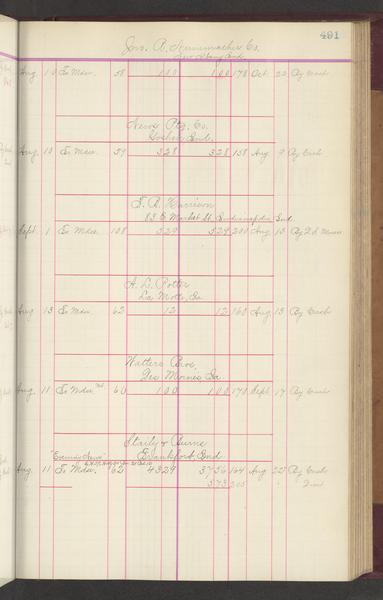 491
Jno. A. Nunemacher Co.
New Albany Ind.
Aug. 10 To Mdse. 58 1 00 1 00 178 Oct. 22 By Cash
News Ptg. Co.
Goshen Ind.
Aug. 10 To Mdse. 59 3 28 3 28 158 Aug. 9 By Cash
T. R. Harrison
83 E Market St. Indianapolis Ind
Sept. 1 To Mdse. 108 5 29 5 29 200 Aug. 10 By Mdse
A. L. Potter
La Motte, Ia
Aug. 13 To Mdse. 62 12 12 160 Aug. 13 By Cash
Watters Bros.
Des Moines Ia
Aug. 11 To Mdse. 60 1 00 1 00 170 Sept. 17 By Cash
Staily & Burne
"Evening News" Frankfort, Ind
Aug. 11 To Mdse. 62 43 29 37 56 164 Aug 22 By Cash
5 73 205